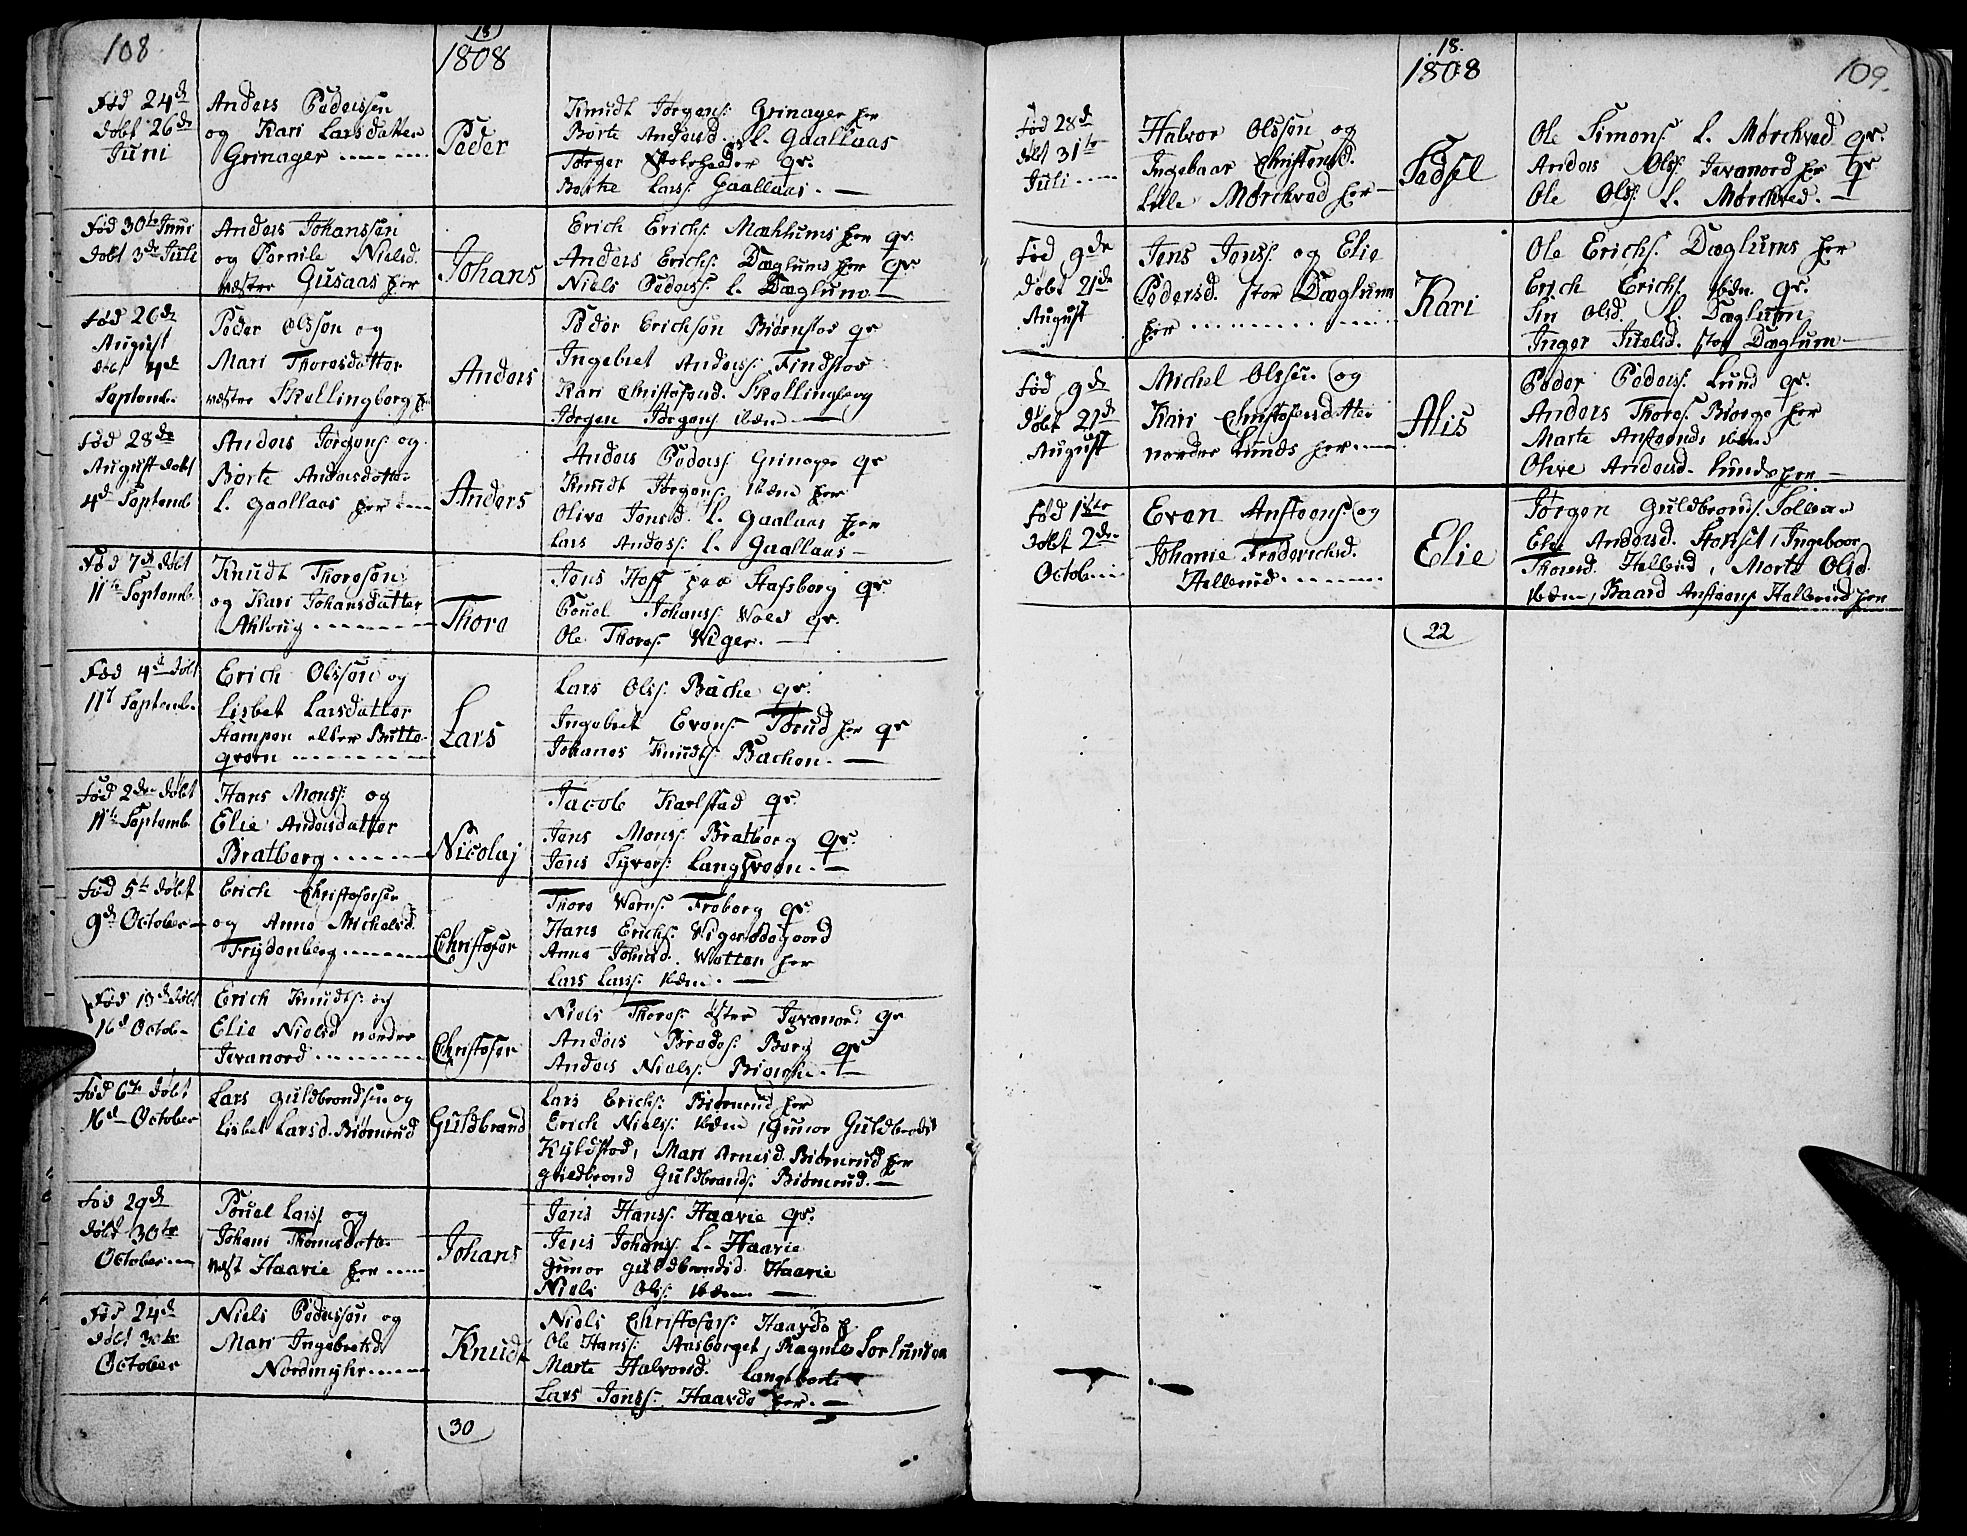 108
18
1808
Fød 24de
døbt 26de
Juni
Anders Pedersen
og Kari Larsdatter
Grinager
Peder
Knudt Jørgens: Grinager her
Børte Andersd. L. Gaallaas
Jørger qr.
Larss: Gaallaas.
Fød 30te Juni
døbt 3de Juli
Anders Johanssen
og Pernile Nielsd.
vestre Gusaas her
Johans
Erich Erichs: Mæhlums her qr.
Anders Erichs: Dæglums her qr.
Niels Peders: L. Dæglum
Fød 26de
August
døbt 4de
Septemb.
Peder Olsson og
Mari Thoresdatter
vestre Skellingberg
Anders
Peder Erichsen Biørnstad qr
Ingebret Anders: Findstad
Kari Christofersd. Skellingberg
Jørgen Jørgens ibdm
Fød 28de
August døbt
4de Septemb
Anders Jørgens: og
Børte Andersdatter
L. Gaallaas her
Anders
Anders Peders: Grinager qr
Knudt Jørgens: ibdm her
Olive Jensd. L. Gaalaas her
Lars Anders: L. Gaallaas
Fød 7de døbt
11te Septemb.
Knudt Thoresen
og Kari Johansdatter
Thore
Jens Hoff paa Stafsborg qr.
Pouel Johans: Wold qr.
Ole Thores: Wiger.
Fød 4de døbt
11te Septemb.
Erich Olsson og
Lisbet Larsdatter
Stampen eller Butte-
qvern
Lars
Lars Ols: Bache qr.
Ingebret Evens: her qr
Johanes Knudts: Bachen.
Fød 2den døbt
11te Septemb.
Hans Monss: og
Elie Andersdatter
Bratberg
Nicolaj
Jacob Karlstad qr.
Jens Monss: Bratberg qr.
Jens Syvers: Langsveen.
Fød 5te døbt
9de October
Erich Christofersen
og Anne Michelsd.
Frydenberg
Christofer
Thore Froberg qr.
Hans Erichs: Wiger
Anne Johansd. Wetten her
Lars Larss: ibdm.
Fød 13de døbt
16de October
Erich Knudts: og
Elie Nielsd nordre
Jevanord
Christofer
Niels Thores: østre Jevanord qr
Anders Peders: Berg qr
Anders Niels: Biørge.
Fød 6te døbt
16de October
Lars Guldbrandsen og
Lisbet Larsd. Biørnerud
Guldbrand
Lars Erichs: Biørnerud her
Erich Niels: ibdm, Gunor Guldbrandsd
Kyldstad, Mari Arnesd. Biørnerud her
Guldbrand Guldbrands: Biørnerud.
Fød 29de
døbt 30te
October
Pouel Larss: og
Johane Thomesdatter
vest Haavie her
Johans
Jens Hans: Haavie qr.
Jens Johans: L. Haavie
Gunor Guldbrandsd. Haavie
Niels Ols: ibdm
Fød 24de
døbt 30te
October
Niels Pedersen og
Mari Ingebretsd
Nordmyhr
Knudt
Niels Christofers: Haarde
Ole Hanss: Aasberget, Ragnild Sorlunden
Marte Halvorsd. Langebarte
Lars Jens: Haarde her.
30
109.
18.
1808
Fød 28de
døbt 31te
Juli
Halvor Olsson og
Ingebaar Christensd.
Lille Mørchved her
Sedsel
Ole Simons: L. Mørchved qr.
Anders Ols: Jevanord her qr
Ole Ols: L. Mørchved.
Fød 9de
døbt 21de
August
Jens Jens: og Elie
Pedersd. stor Dæglum
her
Kari
Ole Erichs: Dæglums her
Erich Erichs ibdm. qr.
Siri Olsd. L. Dæglum
Inger Juelsd. stor Dæglum
Fød 9de
døbt 21de
August
Michel Olssen og
Kari Christofersdatter
nordre Lunds her
Alis
Peder Peders: Lund qr.
Anders Thores: Biørge her
Marte Anstensd: ibdm
Olive Andersd. Lunds her
Fød 18te
døbt 2den
October
Even Anstens: og
Johanie Frederichsd.
Hallerud
Elie
Jørgen Guldbrands: Solbær
Elie Andersd. Storset, Ingeboer
Thoresd. Hallerud, Marte Olsd.
ibdm, Baard Anstens Hallerud her
22